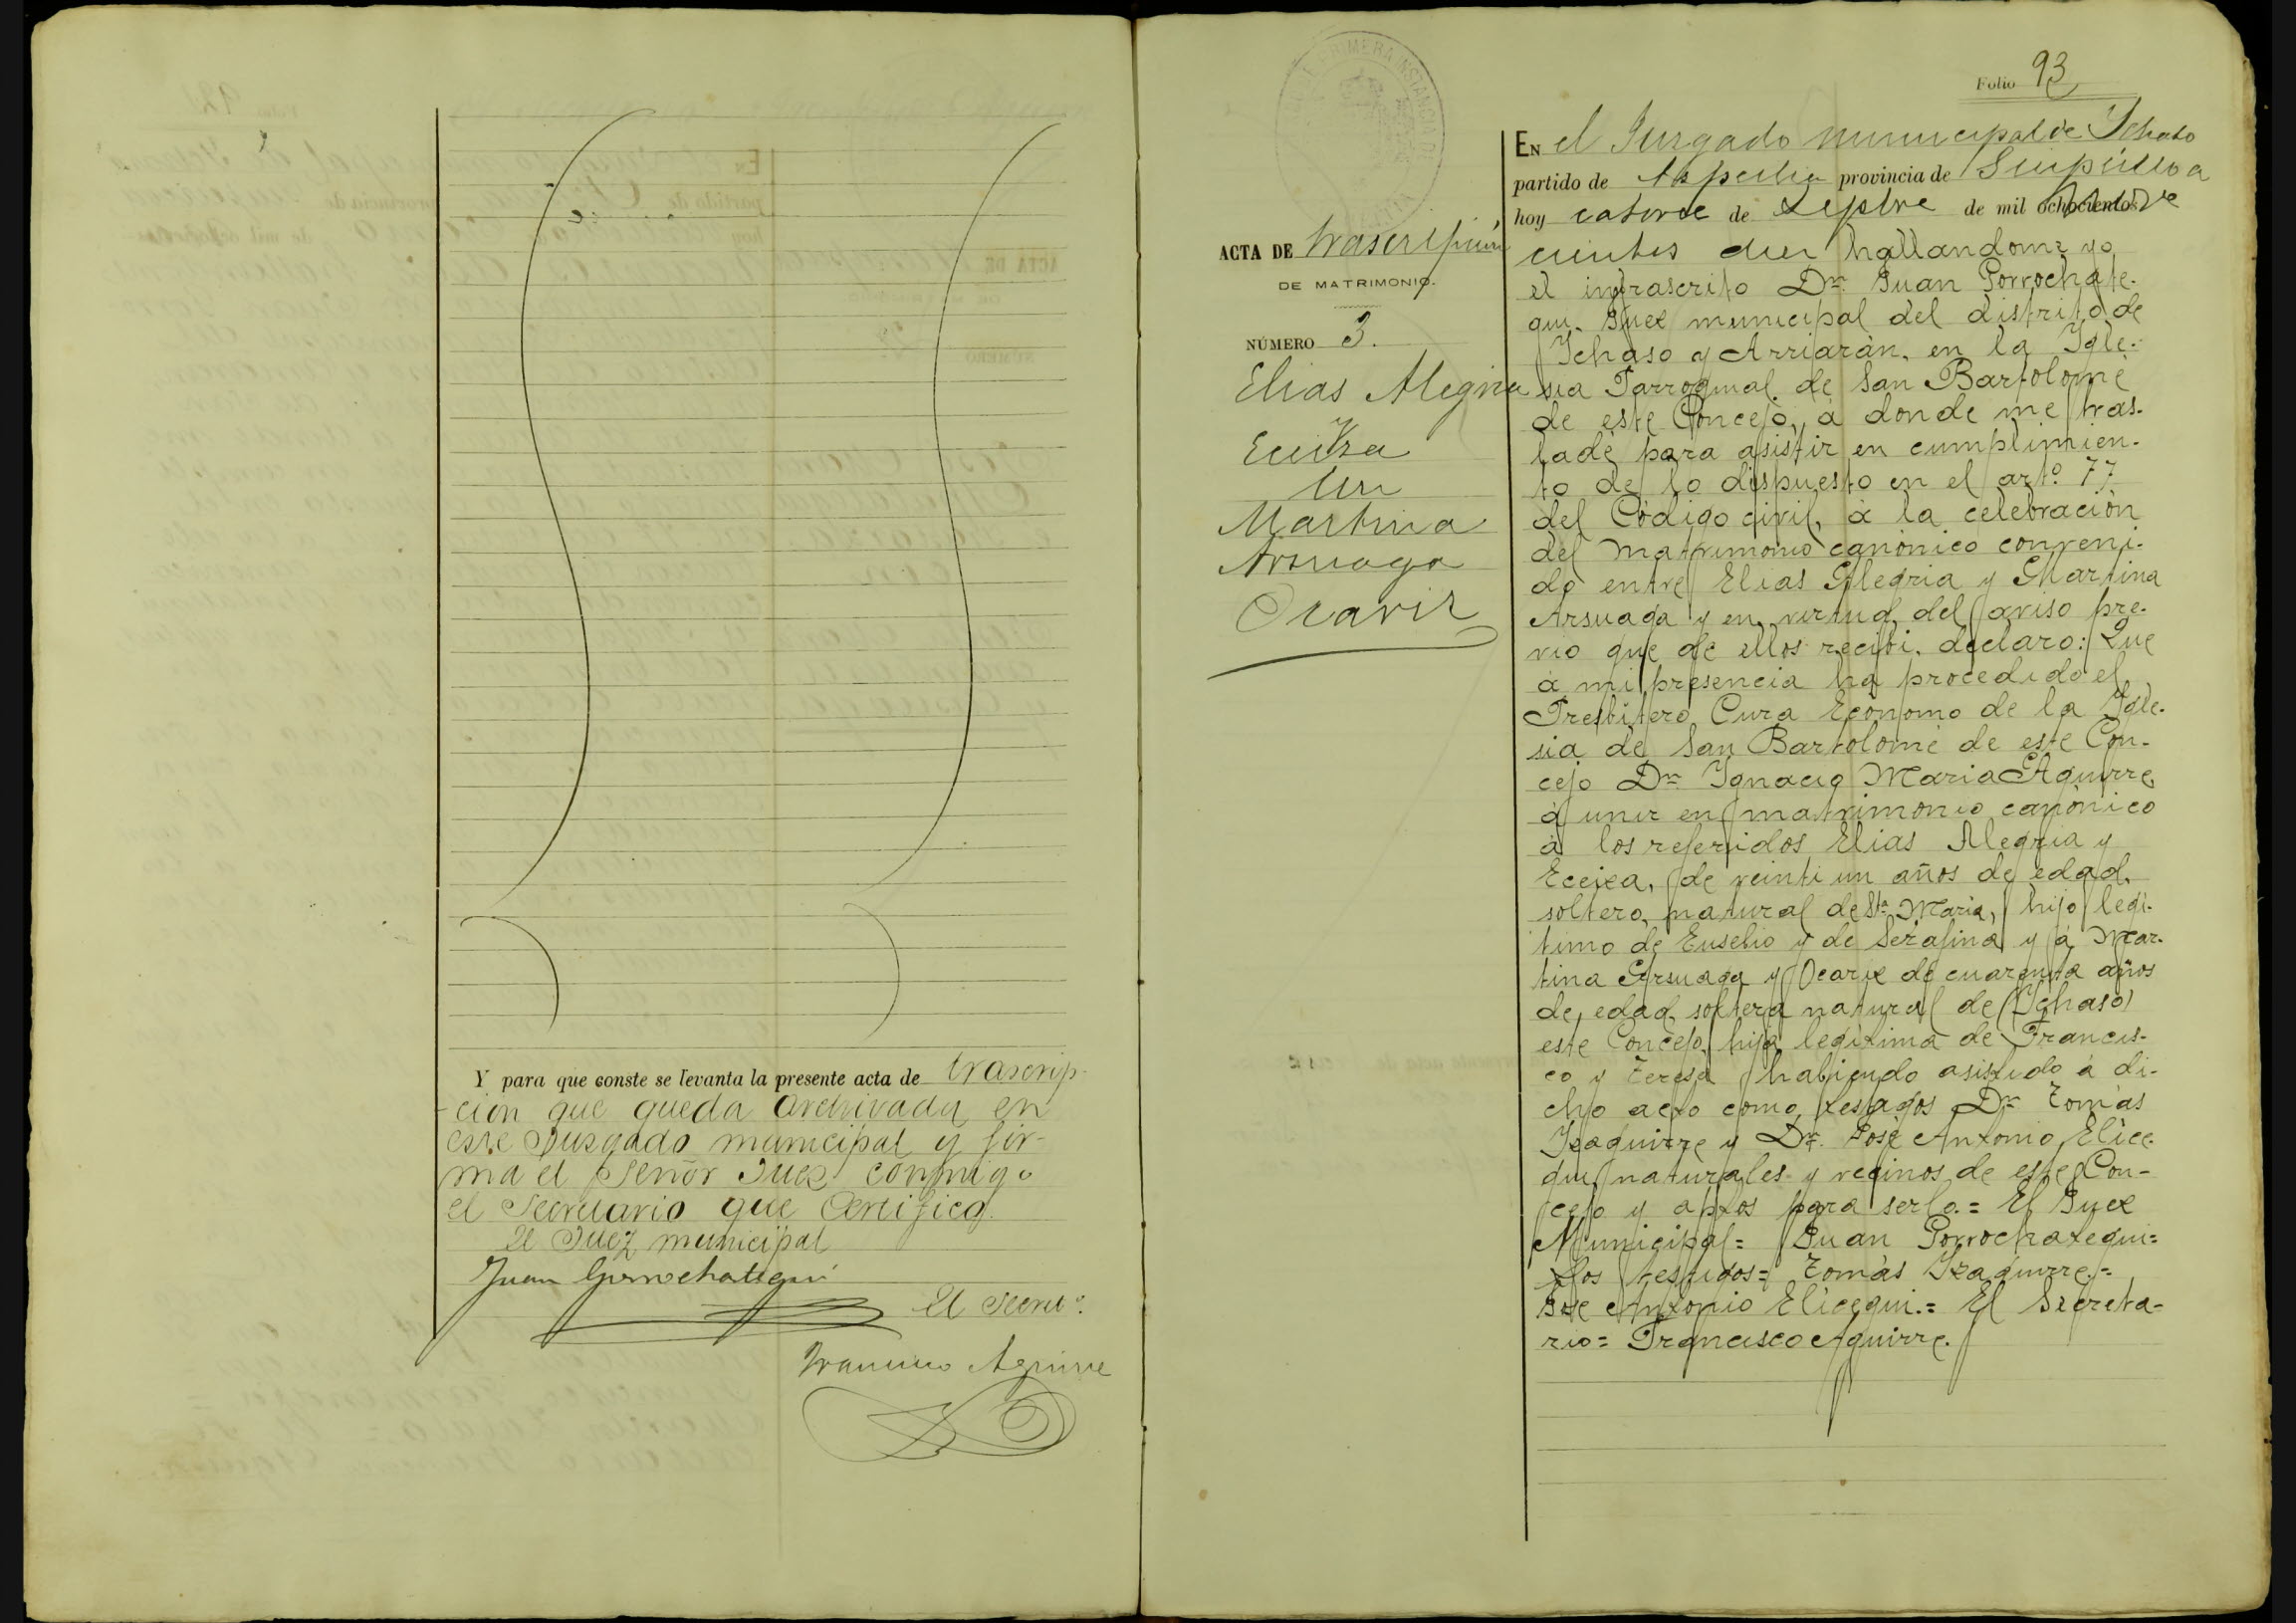 Y para que conste se levanta la presente acta de trascrip-
cion que queda archivada en
este Juzgado municipal y fir-
ma el Señor Juez conmigo
el Secretario que Certifico.
El Juez municipal
Juan Gorrochategui
El Secretº.
Francisco Aguirre
Folio 93
En el Juzgado municipal de Ichaso
partido de Azpeitia provincia de Guipúzcoa
hoy catorce de Septbre de mil ochocientos
cientos diez hallandome yo
el infrascrito Dn. Juan Gorrochate-
gui, Juez municipal del distrito de
Ichaso y Arriarán, en la Igle-
sia Parroquial de San Bartolomé
de este Concejo, á donde me tras-
ladé para asistir en cumplimien-
to de lo dispuesto en el artº. 77
del Código civil, á la celebración
del matrimonio canónico conveni-
do entre Elias Alegria y Martina
Arsuaga y en virtud del aviso pre-
vio que de ellos recibí, declaro: Que
á mi presencia ha procedido el
Presbítero Cura Ecónomo de la Igle-
sia de San Bartolomé de este Con-
cejo Dn. Ignacio Maria Aguirre,
á unir en matrimonio canónico
á los referidos Elias Alegria y
Eceiza, de veinti un años de edad,
soltero, natural de Sta. Maria, hijo legí-
timo de Eusebio y de Serafina y á Mar-
tina Arsuaga y Ocariz de cuarenta años
de edad, soltera natural de (Ichaso)
este Concejo, hija legítima de Francis-
co y Teresa habiendo asistido á di-
cho acto como testigos Dn. Tomás
Izaguirre y Dn. José Antonio Elice-
gui naturales y vecinos de este Con-
cejo y aptos para serlo.= El Juez
Municipal= Juan Gorrochategui=
Los testigos= Tomás Izaguirre.=
José Antonio Elicegui.= El Secreta-
rio= Francisco Aguirre.
ACTA DE trascripción
DE MATRIMONIO.
NÚMERO 3.
Elias Alegria
Eceiza
con
Martina
Arsuaga
Ocariz